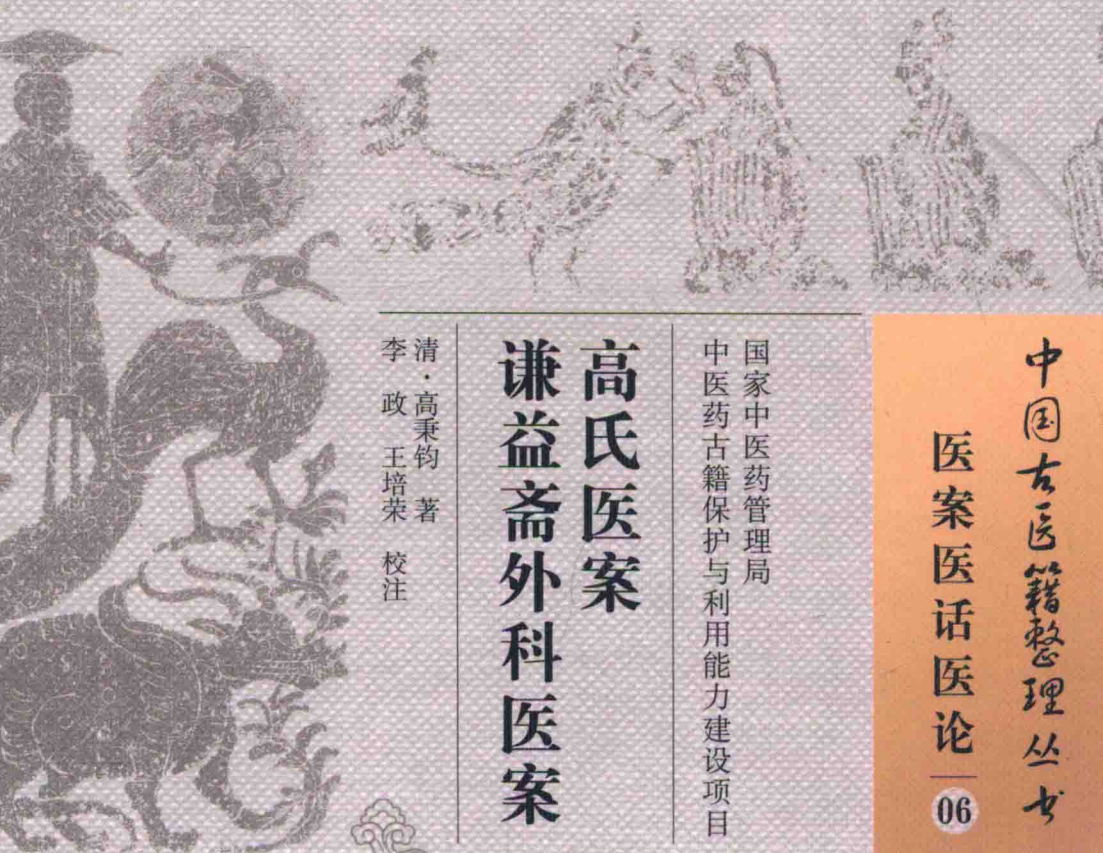 中国古医籍整理丛书
医案医话医论
06
国家中医药管理局
中医药古籍保护与利用能力建设项目
高氏医案
谦益斋外科医案
清·高秉钧 著
李 政 王培荣 校注